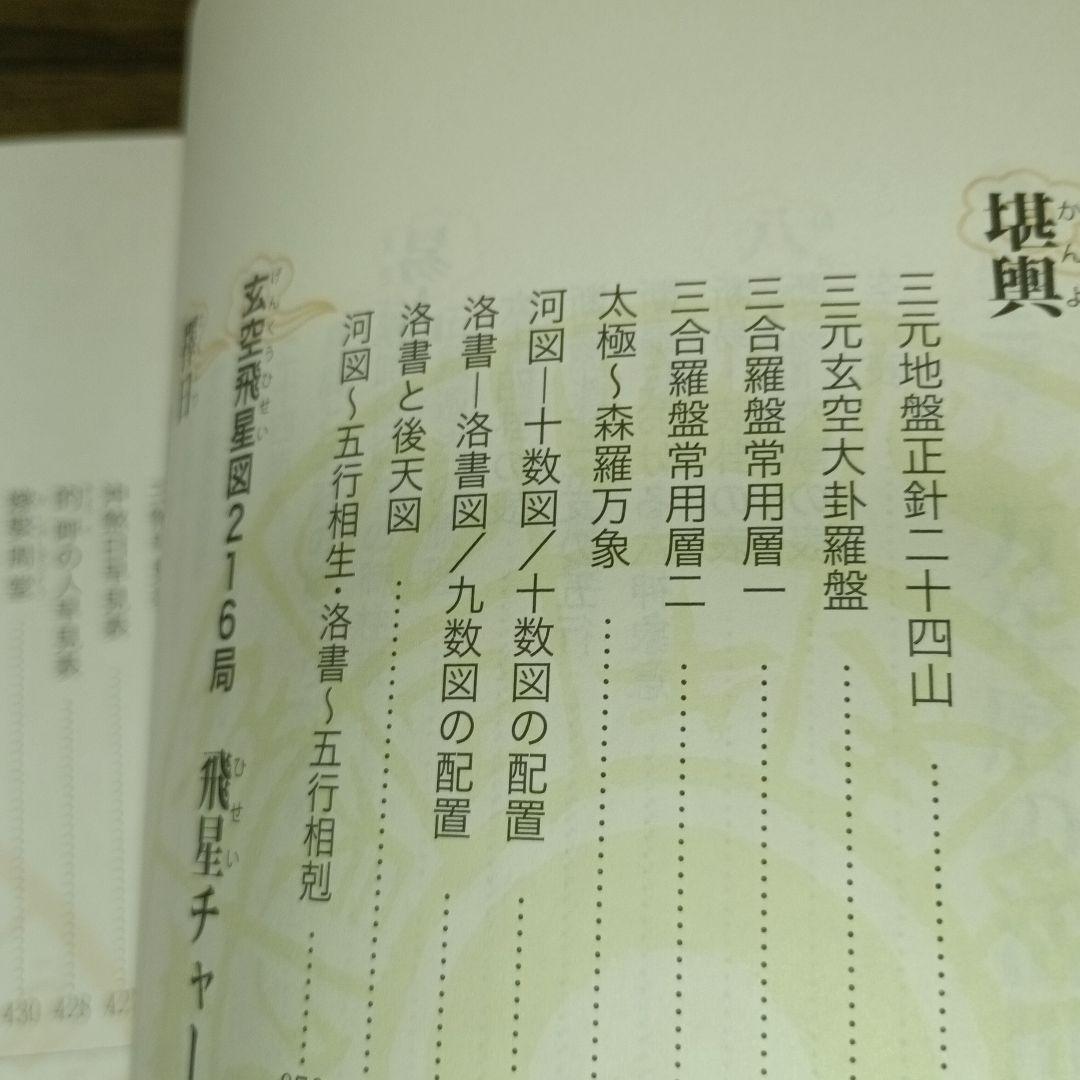 堪輿
かんよ
三元地盤正針二十四山
三元玄空大卦羅盤
三合羅盤常用層一
三合羅盤常用層二
太極〜森羅万象
河図―十数図／十数図の配置
洛書―洛書図／九数図の配置
洛書と後天図
河図〜五行相生・洛書〜五行相剋
玄空飛星図216局 飛星チャー
げんくうひせい
ひせい
428
430